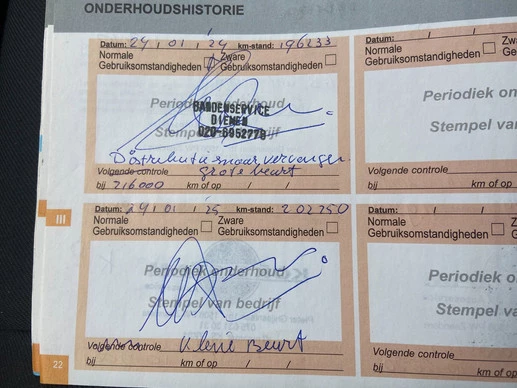 ONDERHOUDSHISTORIE
Datum: 24 / 01 / 24 km-stand: 196233
Normale Gebruiksomstandigheden
Zware Gebruiksomstandigheden
Periodiek onderhoud
BANDENSERVICE
DIEMEN
020-6952778
Stempel van bedrijf
Distributie snaar vervangen
grote beurt
Volgende controle
bij 216000 km of op / /
Datum: 24 / 01 / 25 km-stand: 202250
Normale Gebruiksomstandigheden
Zware Gebruiksomstandigheden
Periodiek onderhoud
Stempel van bedrijf
Volgende controle
Kleine Beurt
bij km of op / /
III
22
Datum: / /
Normale Gebruiksomstandigheden
Periodiek on
Stempel van
Volgende controle
bij km of op
Datum: / /
Normale Gebruiksomstandigheden
Periodiek o
Stempel va
Volgende controle
bij km of op